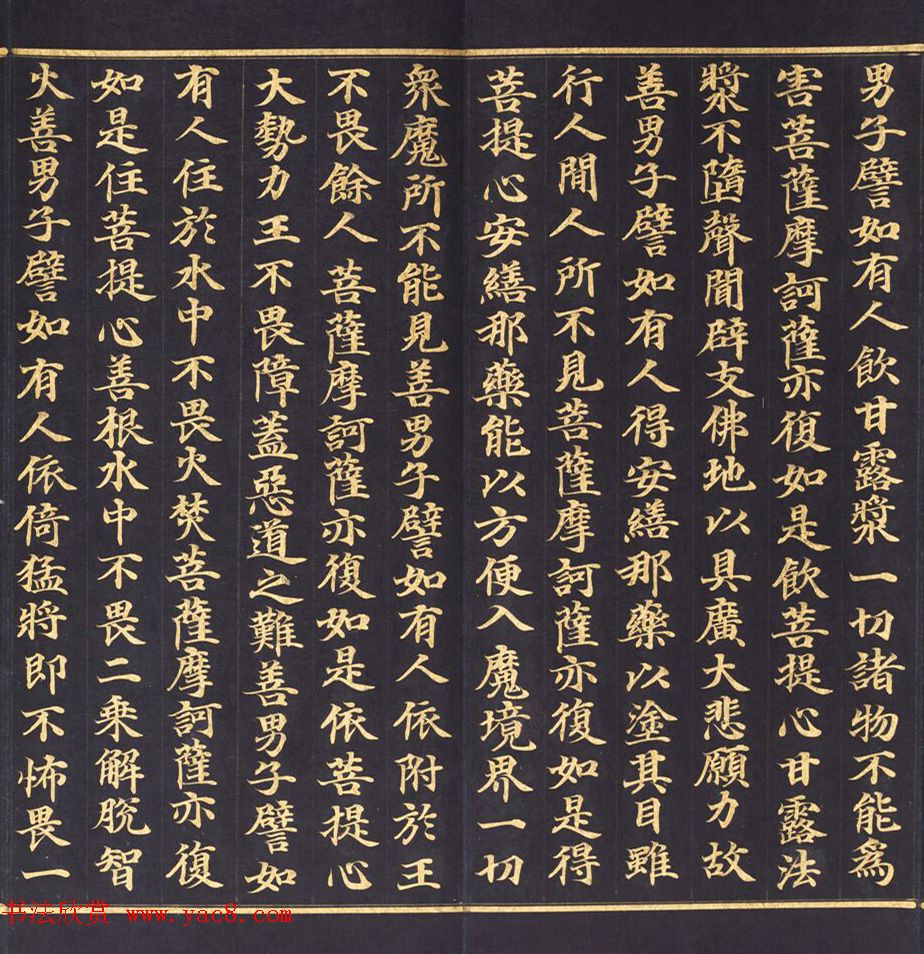 男子譬如有人飲甘露漿一切諸物不能為
害菩薩摩訶薩亦復如是飲菩提心甘露法
漿不墮聲聞辟支佛地以具廣大悲願力故
善男子譬如有人得安繕那藥以塗其目雖
行人間人所不見菩薩摩訶薩亦復如是得
菩提心安繕那藥能以方便入魔境界一切
眾魔所不能見善男子譬如有人依附於王
不畏餘人菩薩摩訶薩亦復如是依菩提心
大勢力王不畏障蓋惡道之難善男子譬如
有人住於水中不畏火焚菩薩摩訶薩亦復
如是住菩提心善根水中不畏二乘解脫智
火善男子譬如有人依倚猛將即不怖畏一
书法欣赏 www.yac8.com